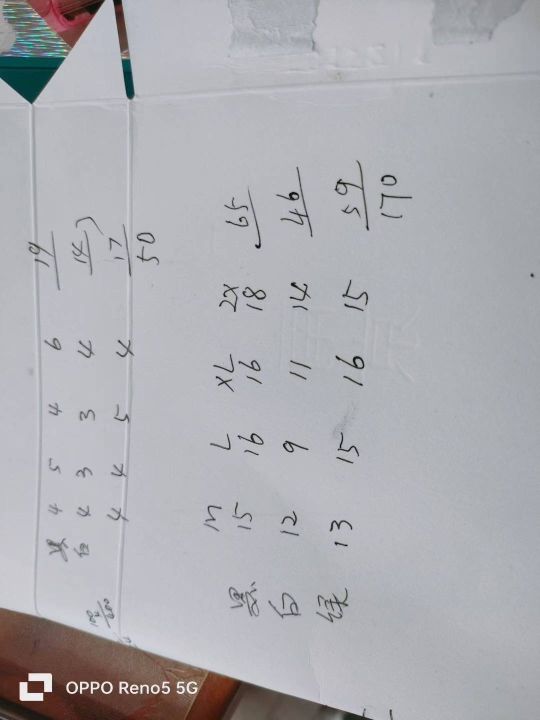 黑 4 5 4 6 19
白 4 3 3 4 14
4 4 5 4 17
50
M L XL 2X
黑 15 16 16 18 65
白 12 9 11 14 46
绿 13 15 16 15 59
170
OPPO Reno5 5G